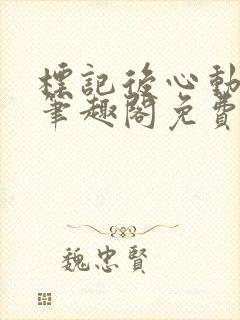 標記後心動
筆趣閣免費
魏忠賢